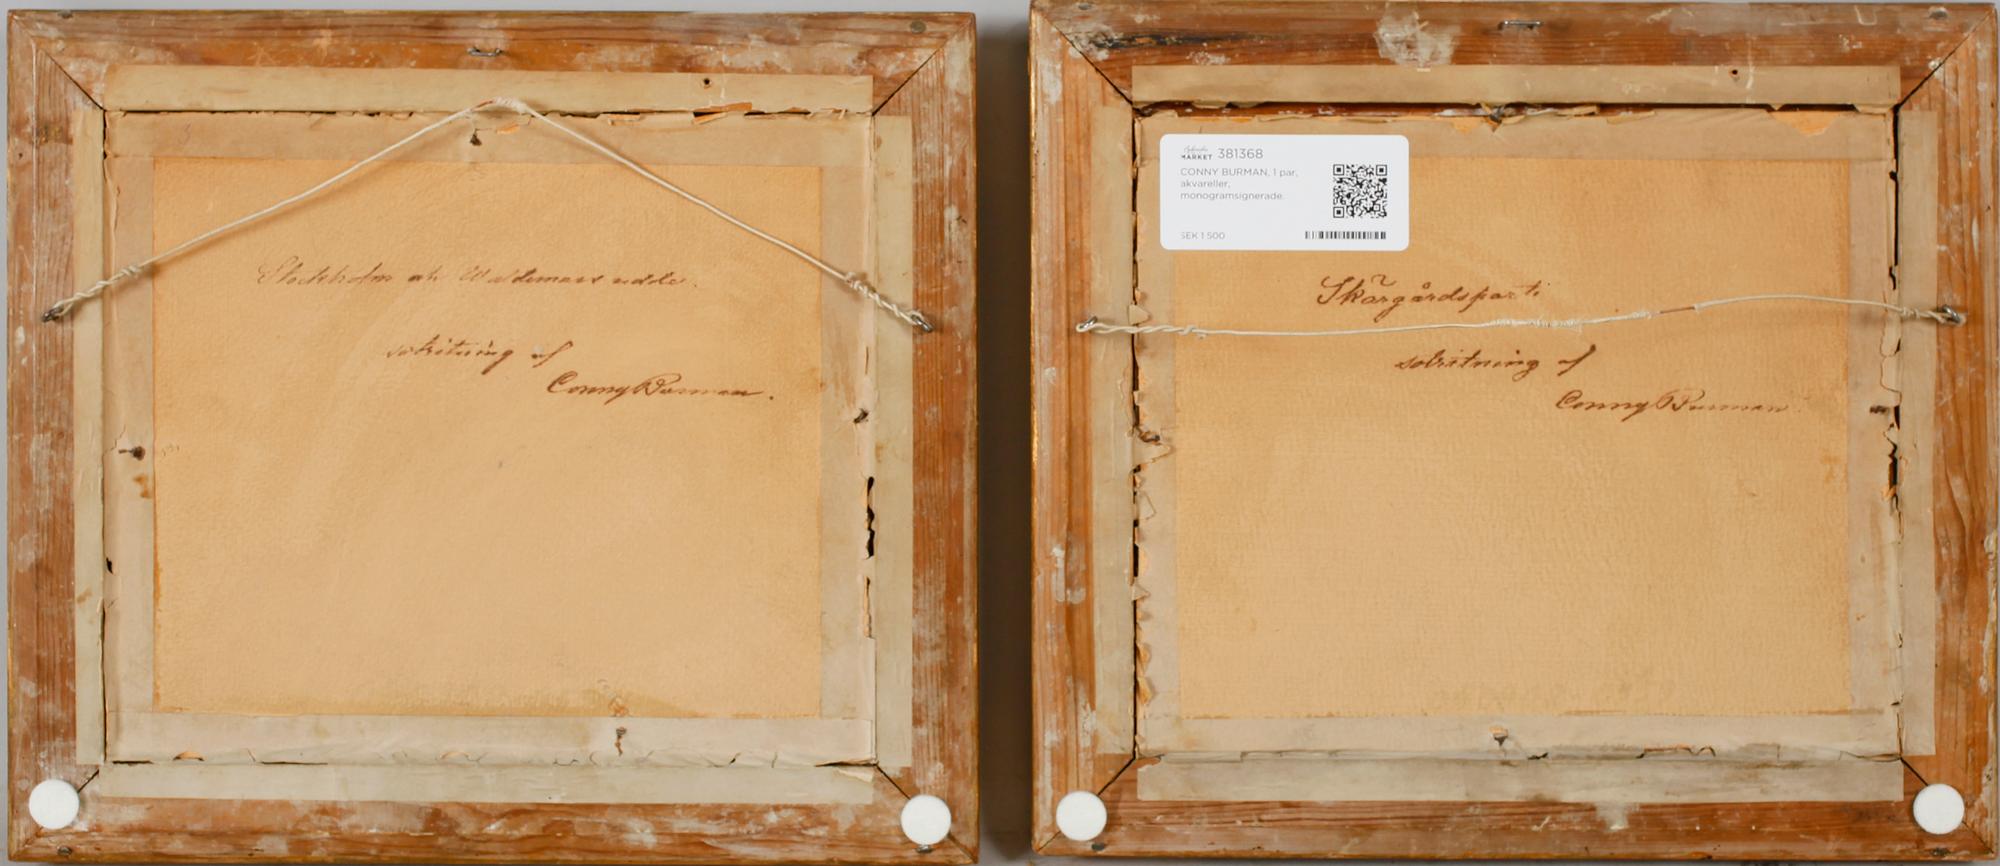 Stockholm och Waldemars udde.
solritning af
Conny Burman.
MARKET 381368
CONNY BURMAN, 1 par,
akvareller,
monogramsignerade.
SEK 1 500
Skärgårdsparti
solritning af
Conny Burman